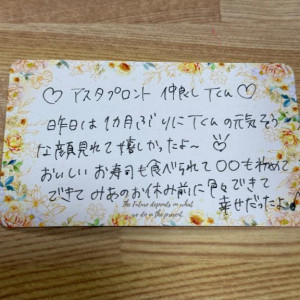 ♡ アスタプロント 仲良し Tくん ♡
昨日は1カ月ぶりにTくんの元気そう
な顔見れて嬉しかったよ～
おいしいお寿司も食べられて〇〇も
できて みあのお休み前に色々できて
幸せだったよ
The Future depends on what
we do in the present.